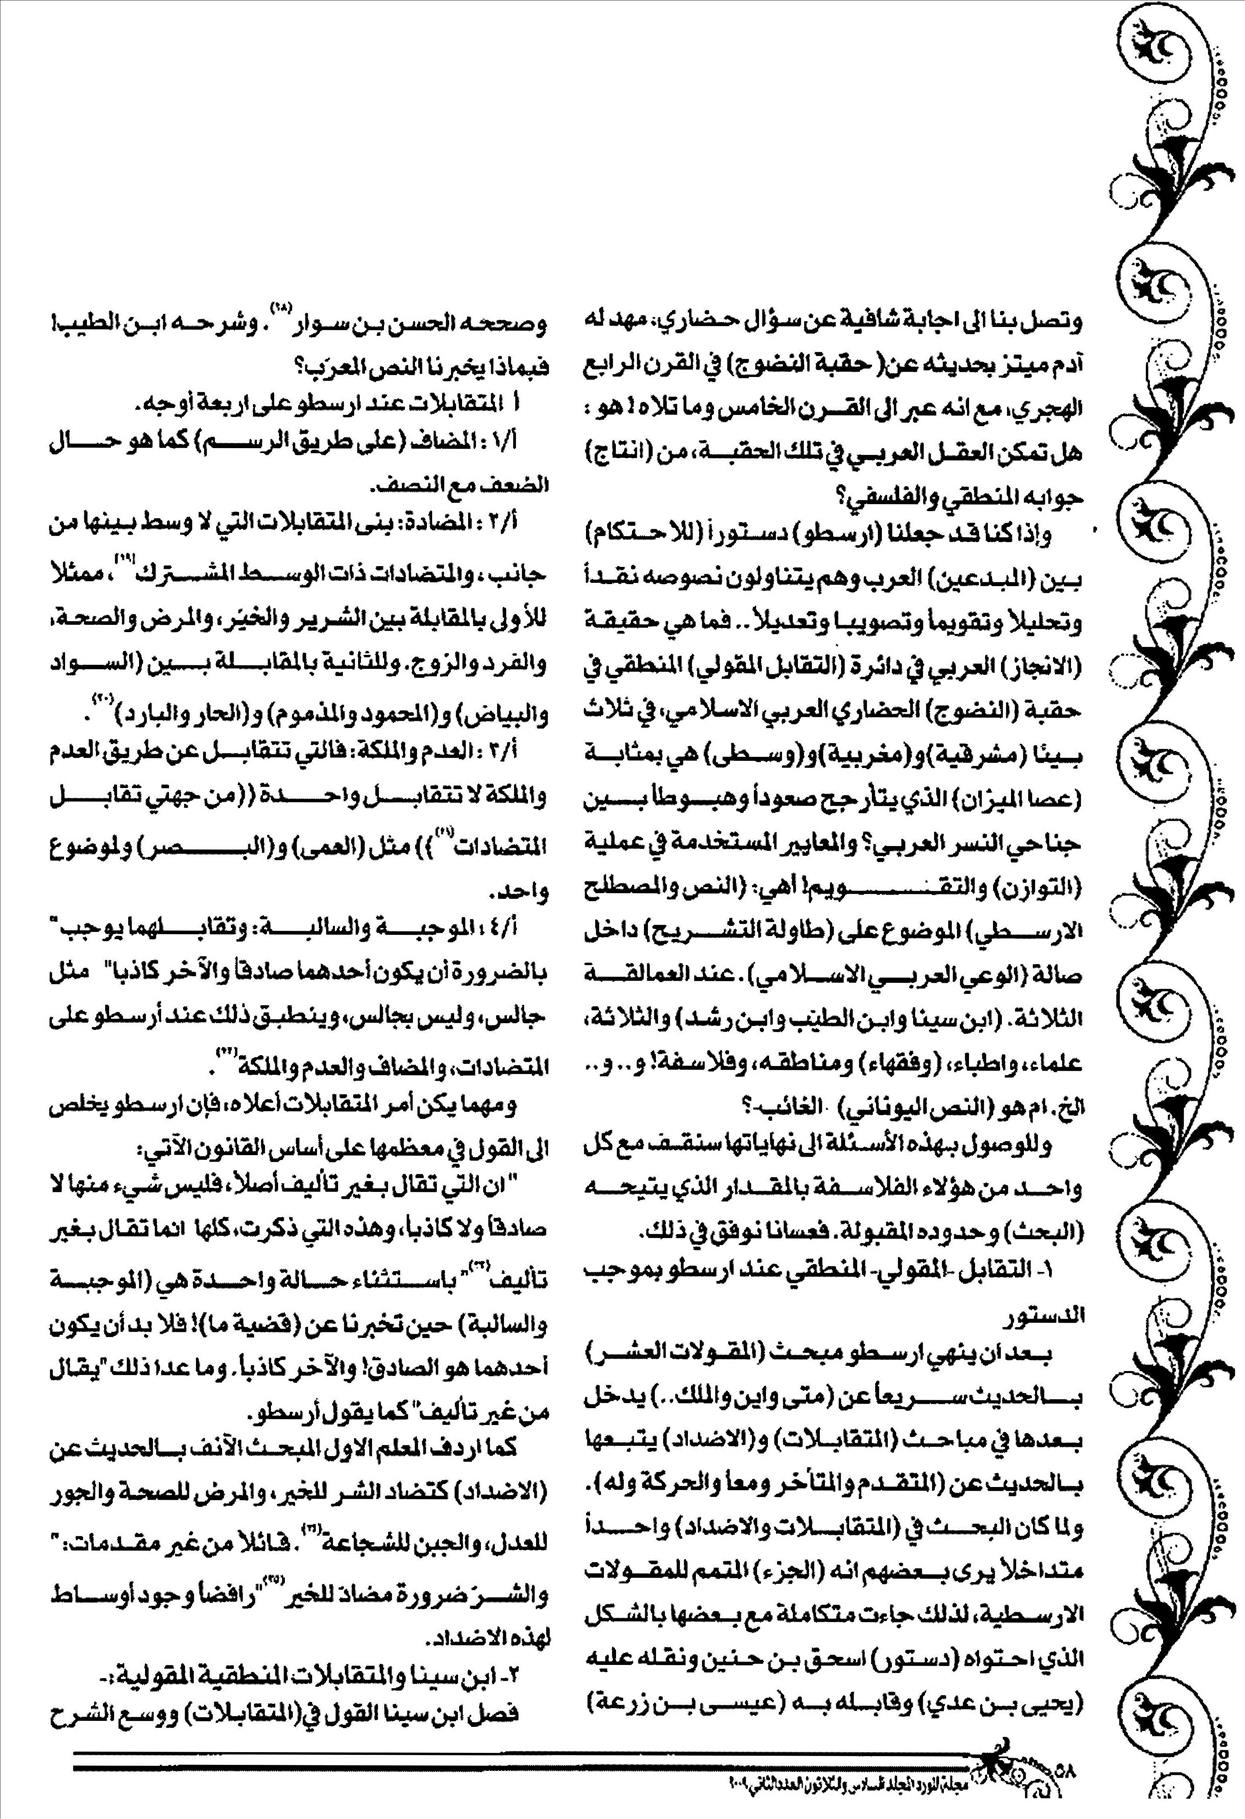 وتصل بنا الى اجابة شافية عن سؤال حضاري، مهد له
آدم ميتز بحديثه عن( حقبة النضوج) في القرن الرابع
الهجري، مع انه عبر الى القرن الخامس وما تلاه! هو :
هل تمكن العقل العربي في تلك الحقبة، من (انتاج)
جوابه المنطقي والفلسفي؟
وإذا كنا قد جعلنا (ارسطو) دستوراً (للاحتكام)
بين (المبدعين) العرب وهم يتناولون نصوصه نقداً
وتحليلاً وتقويماً وتصويبا وتعديلاً.. فما هي حقيقة
(الانجاز) العربي في دائرة (التقابل المقولي) المنطقي في
حقبة (النضوج) الحضاري العربي الاسلامي، في ثلاث
بيئا (مشرقية)و(مغربية)و(وسطى) هي بمثابة
(عصا الميزان) الذي يتأرجح صعوداً وهبوطاً بين
جناحي النسر العربي؟ والمعايير المستخدمة في عملية
(التوازن) والتقويم! أهي: (النص والمصطلح
الارسطي) الموضوع على (طاولة التشريح) داخل
صالة (الوعي العربي الاسلامي). عند العمالقة
الثلاثة. (ابن سينا وابن الطيب وابن رشد) والثلاثة،
علماء، واطباء، (وفقهاء) ومناطقه، وفلاسفة! و.. و..
الخ. ام هو (النص اليوناني) الغائب؟
وللوصول بهذه الأسئلة الى نهاياتها سنقف مع كل
واحد من هؤلاء الفلاسفة بالمقدار الذي يتيحه
(البحث) وحدوده المقبولة. فعسانا نوفق في ذلك.
١- التقابل -المقولي- المنطقي عند ارسطو بموجب
الدستور
بعد ان ينهي ارسطو مبحث (المقولات العشر)
بالحديث سريعاً عن (متى واين والملك..) يدخل
بعدها في مباحث (المتقابلات) و(الاضداد) يتبعها
بالحديث عن (المتقدم والمتأخر ومعاً والحركة وله).
ولما كان البحث في (المتقابلات والاضداد) واحداً
متداخلاً يرى بعضهم انه (الجزء) المتمم للمقولات
الارسطية، لذلك جاءت متكاملة مع بعضها بالشكل
الذي احتواه (دستور) اسحق بن حنين ونقله عليه
(يحيى بن عدي) وقابله به (عيسى بن زرعة)
وصححه الحسن بن سوار(٢٨). وشرحه ابن الطيب!
فبماذا يخبرنا النص المعرَب؟
أ المتقابلات عند ارسطو على اربعة أوجه.
أ/١: المضاف (على طريق الرسم) كما هو حال
الضعف مع النصف.
أ/٢: المضادة: بنى المتقابلات التي لا وسط بينها من
جانب، والمتضادات ذات الوسط المشترك(٢٩)، ممثلا
للأولى بالمقابلة بين الشرير والخيَر، والمرض والصحة،
والفرد والزوج. وللثانية بالمقابلة بين (السواد
والبياض) و(المحمود والمذموم) و(الحار والبارد)(٣٠).
أ/٣: العدم والملكة: فالتي تتقابل عن طريق العدم
والملكة لا تتقابل واحدة ((من جهتي تقابل
المتضادات(٣١))) مثل (العمى) و(البصر) ولموضوع
واحد.
أ/٤: الموجبة والسالبة: وتقابلهما يوجب"
بالضرورة أن يكون أحدهما صادقاً والآخر كاذبا" مثل
جالس، وليس بجالس، وينطبق ذلك عند أرسطو على
المتضادات، والمضاف والعدم والملكة(٣٢).
ومهما يكن أمر المتقابلات أعلاه، فإن ارسطو يخلص
الى القول في معظمها على أساس القانون الآتي:
"ان التي تقال بغير تأليف أصلاً، فليس شيء منها لا
صادقاً ولا كاذباً، وهذه التي ذكرت، كلها انما تقال بغير
تأليف(٣٣)" باستثناء حالة واحدة هي (الموجبة
والسالبة) حين تخبرنا عن (قضية ما)! فلا بد أن يكون
أحدهما هو الصادق! والآخر كاذباً. وما عدا ذلك "يقال
من غير تأليف" كما يقول أرسطو.
كما اردف المعلم الاول المبحث الآنف بالحديث عن
(الاضداد) كتضاد الشر للخير، والمرض للصحة والجور
للعدل، والجبن للشجاعة(٣٤). قائلا من غير مقدمات: "
والشرَ ضرورة مضادَ للخير(٣٥)" رافضاً وجود أوساط
لهذه الاضداد.
٢- ابن سينا والمتقابلات المنطقية المقولية:-
فصل ابن سينا القول في(المتقابلات) ووسع الشرح
٥٨
مجلة المورد المجلد السادس والثلاثون العدد الثاني ٢٠٠٩